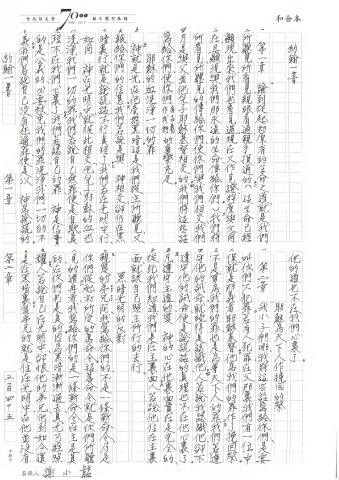 和合本
台北信友堂 70週年
約翰一書
第一章 論到從起初原有的生命之道就是我們
所聽見所看見親眼看過親手摸過的(這生命已經
顯現出來我們也看見過現在又作見證將原與父同
在且顯現與我們那永遠的生命傳給你們)我們將
所看見所聽見的傳給你們使你們與我們相交我們
乃是與父並他兒子耶穌基督相交的我們將這些話
寫給你們使你們的喜樂充足
耶穌的血洗淨一切的罪
神就是光在他毫無黑暗這是我們從主所聽見又
報給你們的信息我們若說是與神相交卻仍在黑
暗裏行就是說謊話不行真理了我們若在光明中行
如同神在光明中就彼此相交他兒子耶穌的血也
洗淨我們一切的罪我們若說自己無罪便是自欺真
理不在我們心裏了我們若認自己的罪神是信實
的是公義的必要赦免我們的罪洗淨我們一切的不
義我們若說自己沒有犯過罪便是以神為說謊的
約翰一書 第一章
他的道也不在我們心裏了
耶穌為天下人作挽回的祭
第二章 我小子們哪我將這些話寫給你們是要
叫你們不犯罪若有人犯罪在父那裏我們有一位中
保就是那義者耶穌基督他為我們的罪作了挽回祭
不是單為我們的罪也是為普天下人的罪我們若遵
守他的誡命就曉得是認識他人若說我認識他卻不
遵守他的誡命便是說謊話的真理也不在他心裏了
凡遵守主道的愛神的心在他裏面實在是完全的
從此我們知道我們是在主裏面人若說他住在主裏
面就該自己照主所行的去行
黑暗光明的反對
親愛的弟兄阿我寫給你們的不是一條新命令乃是
你們從起初所受的舊命令這舊命令就是你們所聽
見的道再者我寫給你們的是一條新命令在主是真
的在你們也是真的因為黑暗漸漸過去真光已經照
耀人若說自己在光明中卻恨他的弟兄他到如今還
是在黑暗裏愛弟兄的就是住在光明中在他並沒有
第一章 二百四十五